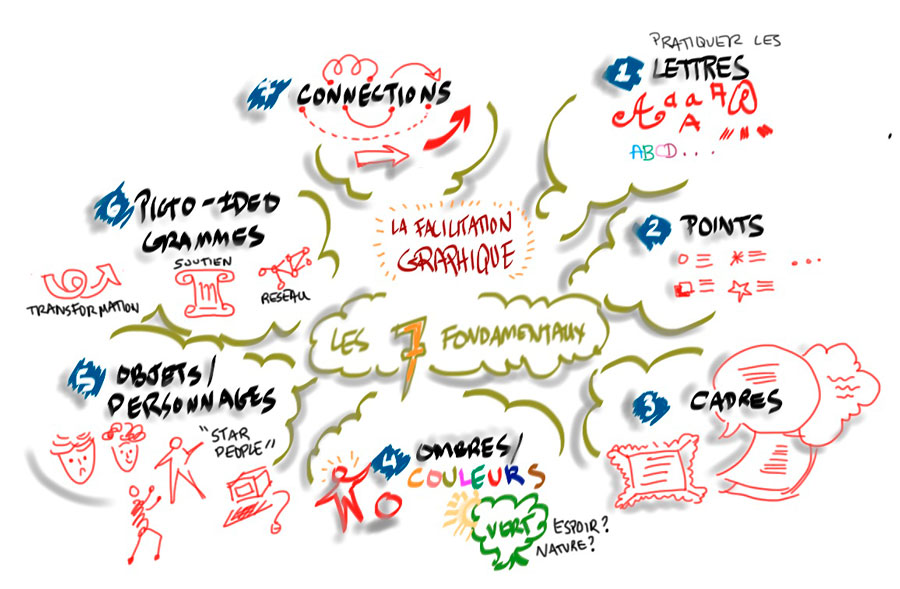 LA FACILITATION
GRAPHIQUE
LES 7 FONDAMENTAUX
PRATIQUER LES
1 LETTRES
A a a A @
A
ABCD...
2 POINTS
3 CADRES
4 OMBRES/
COULEURS
VERT
ESPOIR?
NATURE?
5 OBJETS/
PERSONNAGES
"STAR
PEOPLE"
6 PICTO-IDEO
GRAMMES
SOUTIEN
TRANSFORMATION
RESEAU
7 CONNECTIONS